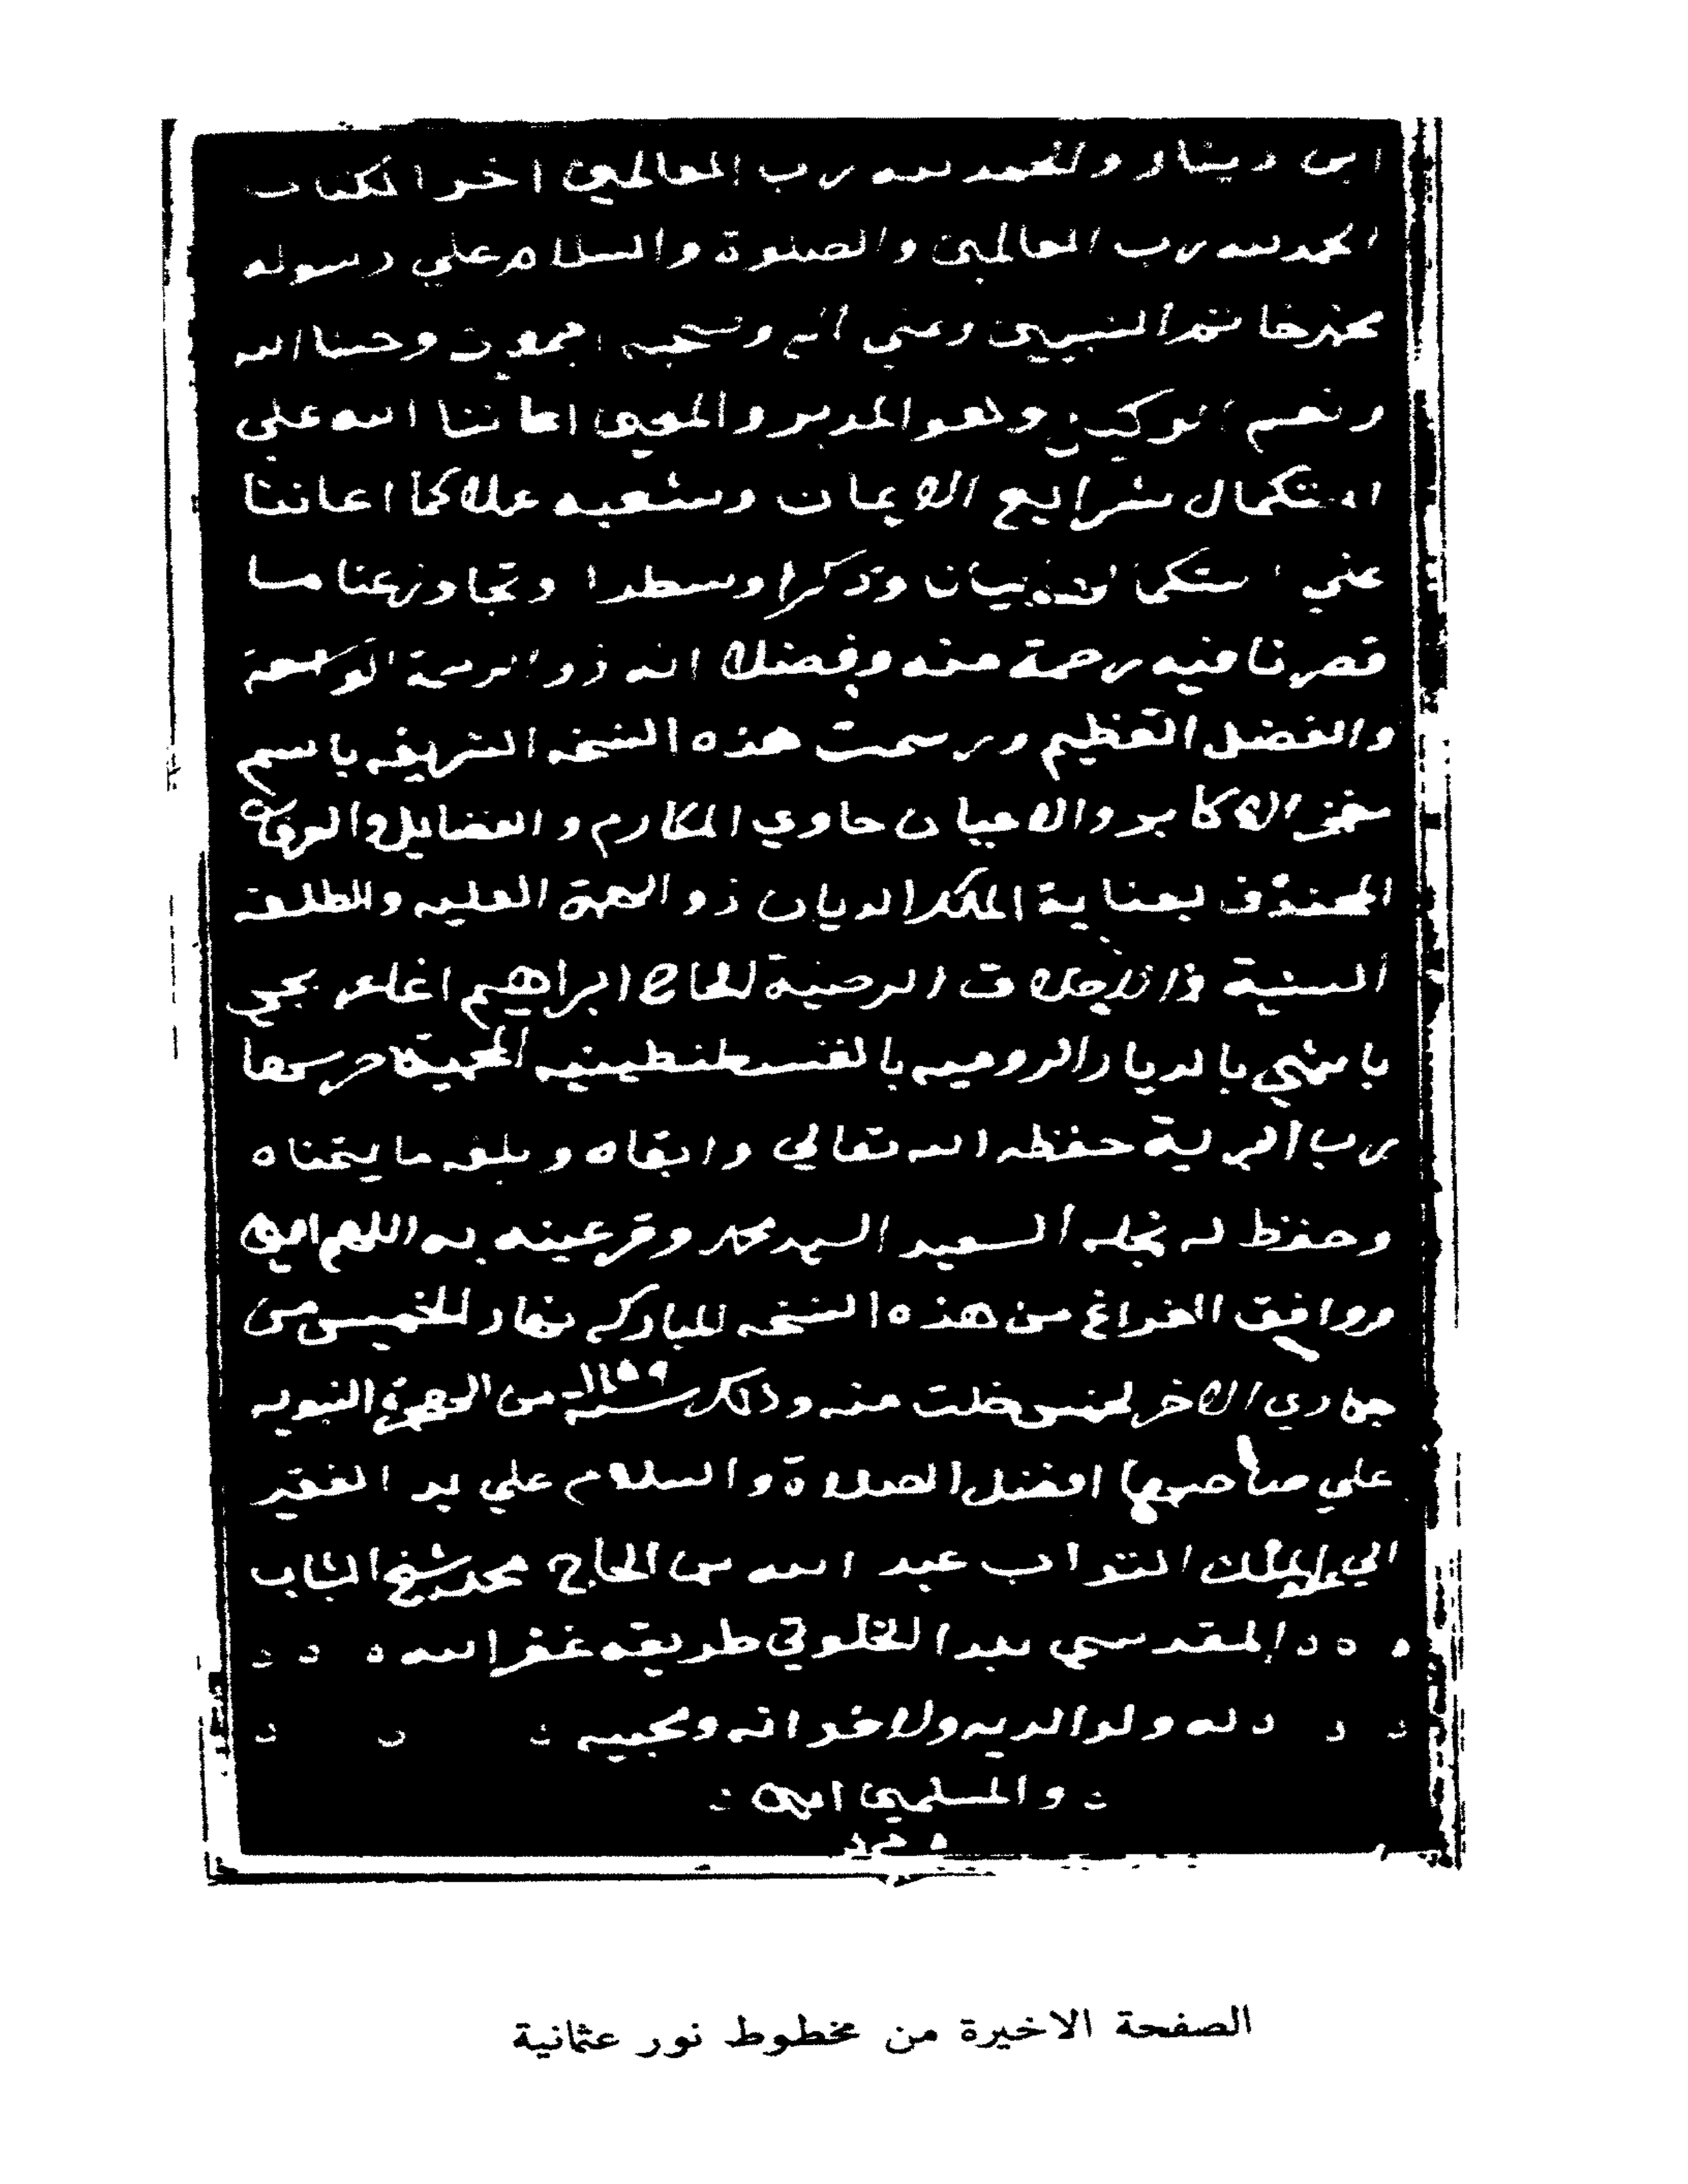 ابن دينار والحمد لله رب العالمين اخر الكتاب
الحمد لله رب العالمين والصلوة والسلام علي رسوله
محمد خاتم النبيين وعلي اله وصحبه اجمعين وحسبنا الله
ونعم الوكيل وهو المدبر والمعين اعاننا الله علي
استكمال شرايع الايمان وشعبه عملا كما اعاننا
علي استكمال بيان وذكرا وسطرا وتجاوز عنا ما
قصرنا فيه رحمة منه وفضلا انه ذو الرحمة الواسعة
والفضل العظيم ورسمت هذه النسخه الشريفه باسم
فخر الاكابر والاعيان حاوي المكارم والفضايل والعرفان
المحفوف بعناية الملك الديان ذو الهمة العليه والطلعة
السنية والاخلاق الرضية الحاج ابراهيم اغا
بالديار الروميه بالقسطنطينيه المحمية حرسها
رب البرية حفظه الله تعالي وابقاه وبلغه ما يتمناه
وحفظ له نجله السعيد السيد محمد وقر عينه به اللهم امين
ووافق الفراغ من هذه النسخه المباركه نهار الخميس من
جمادي الاخر لخمس خلت منه وذلك سنة من الهجرة النبويه
علي صاحبها افضل الصلاة والسلام علي يد الفقير
الي الملك التواب عبد الله بن الحاج محمد الشاب
المقدسي بلدا الخلوتي طريقه غفر الله
له ولوالديه ولاخوانه ومحبيه
والمسلمين امين
الصفحة الاخيرة من مخطوط نور عثمانية